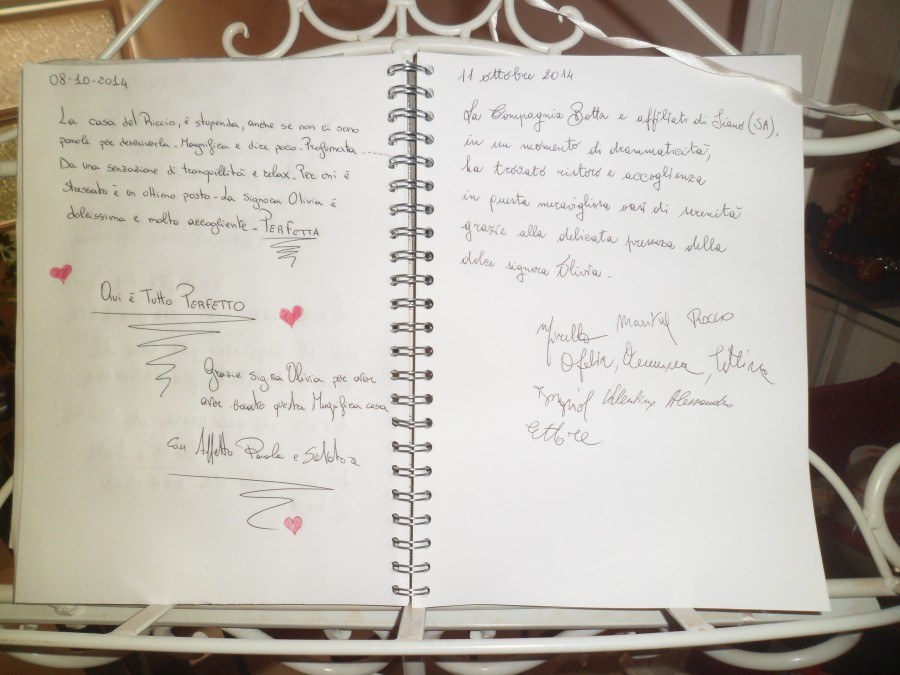 08-10-2014
La casa del Riccio, è stupenda, anche se non ci sono
parole per descriverla - Magnifica e dire poco - Profumata
Da una senzazione di tranquillità e relax - Per chi è
stressato è un ottimo posto - La signora Olivia è
dolcissima e molto accogliente - PERFETTA
Qui è Tutto PERFETTO
Grazie signora Olivia per aver
aver questa Magnifica casa
con Affetto Paola e Salvatore
11 ottobre 2014
La Compagnia Botta e affiliati di Siano (SA),
in un momento di drammaticità,
ha trovato ristoro e accoglienza
in questa meravigliosa oasi di serenità
grazie alla delicata presenza della
dolce signora Olivia.
Rocco
Ofelia,
Valentino Alessandro
Ettore